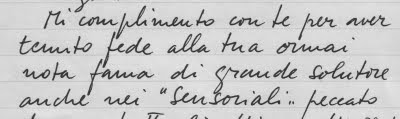 Mi complimento con te per aver
tenuto fede alla tua ormai
nota fama di grande solutore
anche nei "sensoriali„ peccato